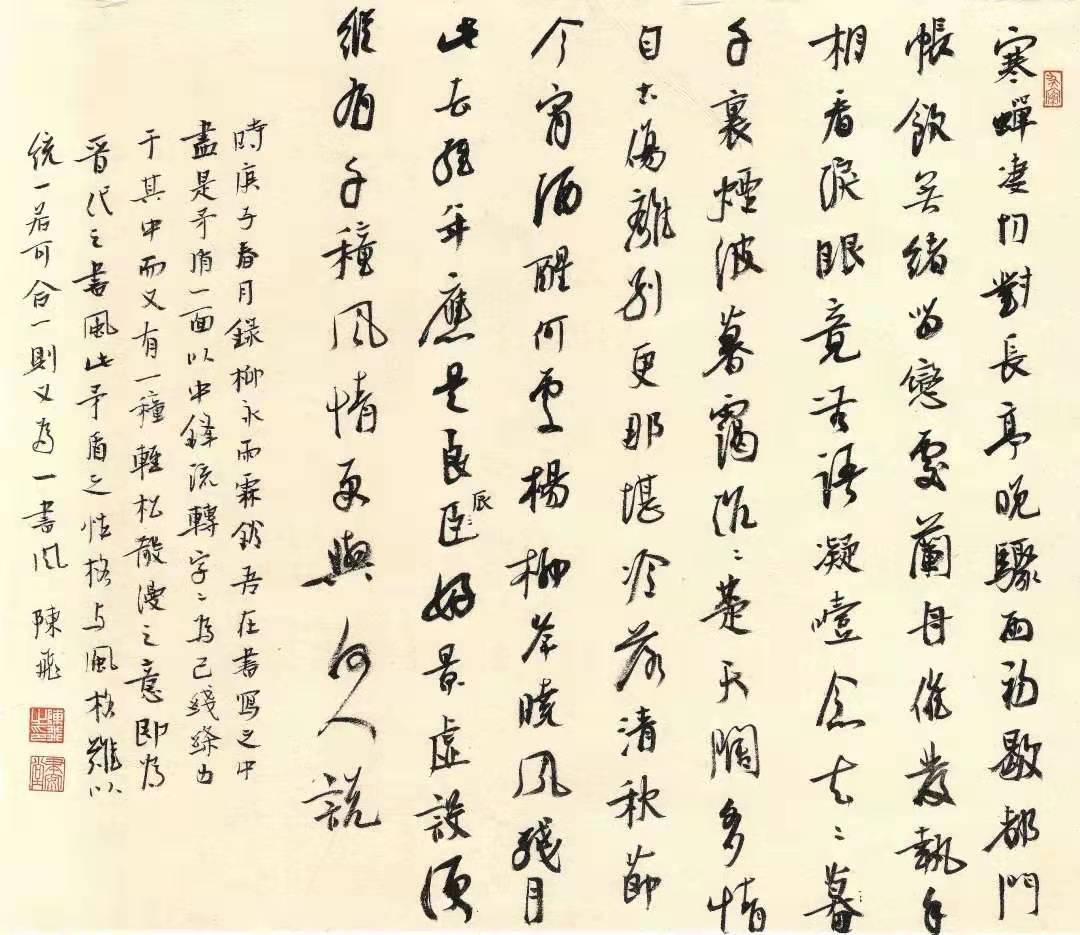 寒蟬淒切對長亭晚驟雨初歇都門
帳飲无緒留戀處蘭舟催發執手
相看淚眼竟无語凝噎念去〻暮
千裏煙波暮靄沉〻楚天闊多情
自古傷離別更那堪冷落清秋節
今宵酒醒何處楊柳岸曉風殘月
此去經年應是良臣〻辰好景虛設便
縱有千種風情更與何人說
時庚子春月錄柳永雨霖鈴吾在書寫之中
盡是矛盾一面以中鋒流轉字〻為己綫條出
于其中而又有一種輕松散漫之意即為
晉代之書風此矛盾之性格与風格難以
統一若可合一則又為一書風 陳飛